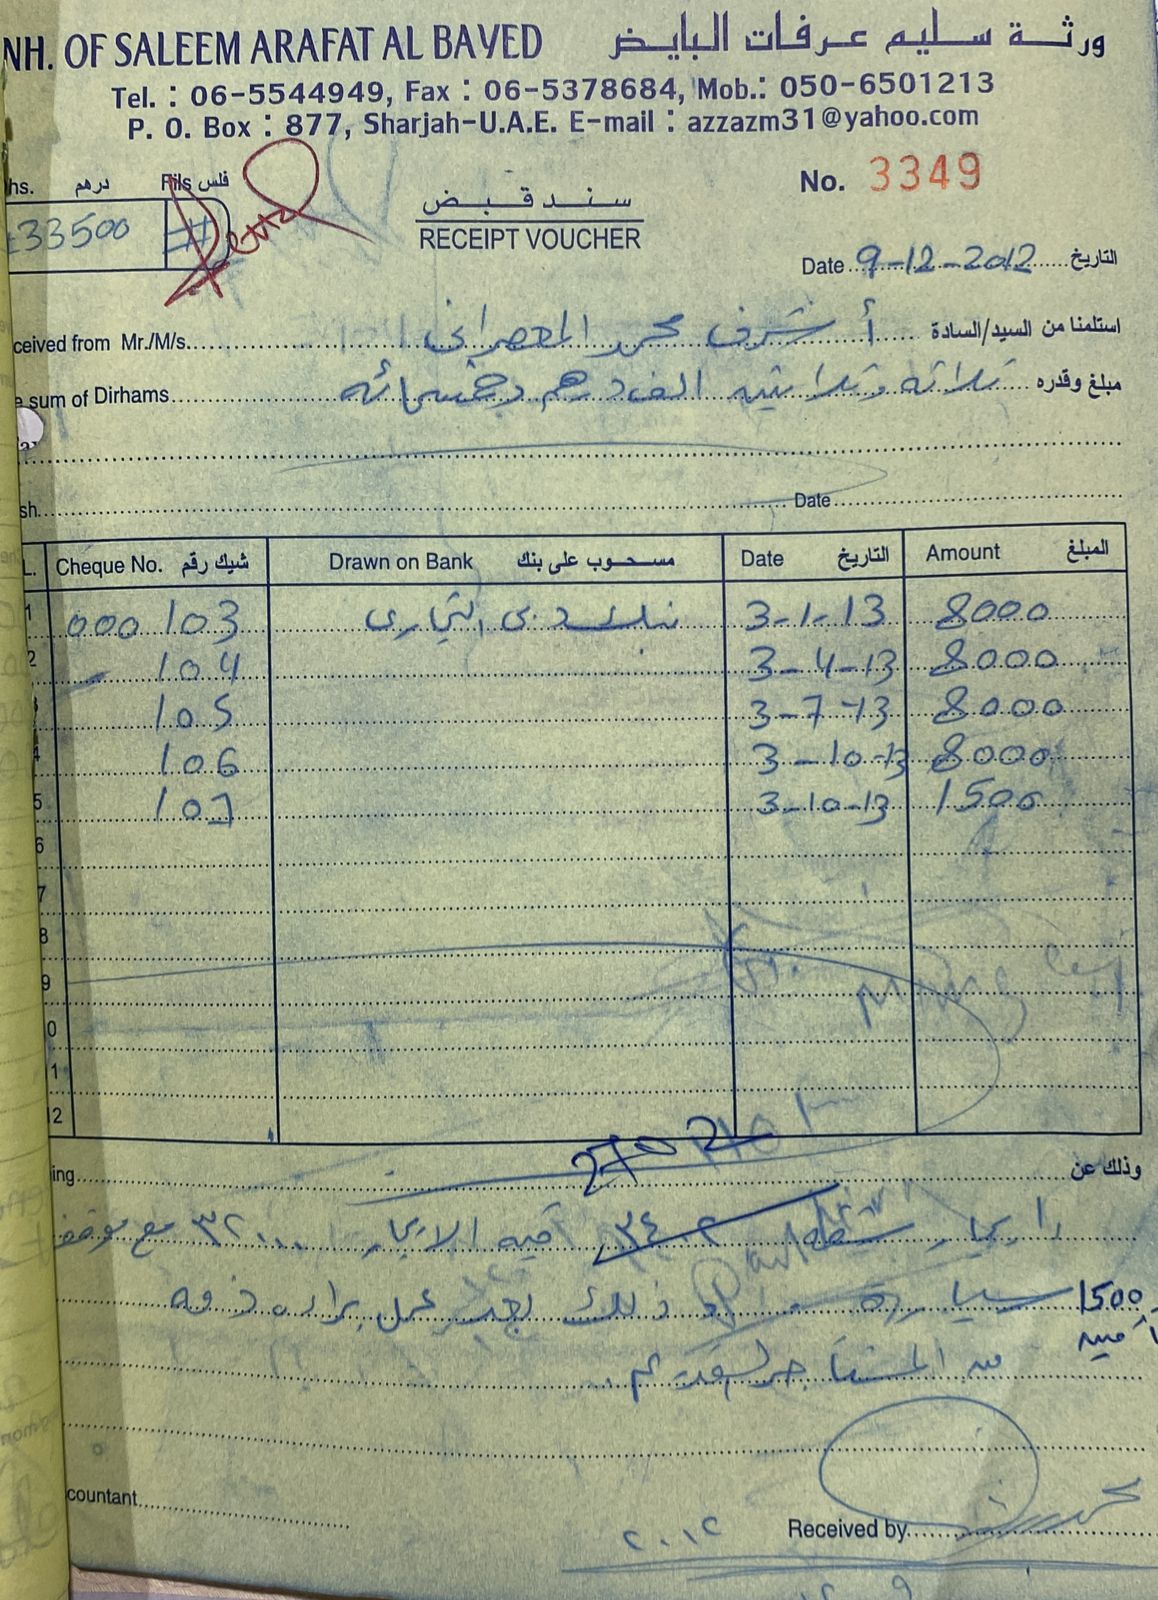 NH. OF SALEEM ARAFAT AL BAYED ورثة سليم عرفات البايض
Tel. : 06-5544949, Fax : 06-5378684, Mob.: 050-6501213
P. O. Box : 877, Sharjah-U.A.E. E-mail : azzazm31@yahoo.com
hs. درهم Fils فلس
33500 #
سند قبض
RECEIPT VOUCHER
No. 3349
Date 9-12-2012 التاريخ
ceived from Mr./M/s. أشرف محمد المصراني استلمنا من السيد/السادة
e sum of Dirhams ثلاثة وثلاثين الف درهم وخمسمائه مبلغ وقدره
sh. Date
L. Cheque No. شيك رقم Drawn on Bank مسحوب على بنك Date التاريخ Amount المبلغ
1 000103 بنك دبي التجاري 3-1-13 8000
2 104 3-4-13 8000
3 105 3-7-13 8000
4 106 3-10-13 8000
5 107 3-10-13 1500
6
7
8
9
0
1
2
ing وذلك عن
شقه ٣٤٠٢ قيمة الايجار ٣٢٠٠٠ مع موقف
سيارة 1500
من المستأجر
countant
Received by
٢٠١٢